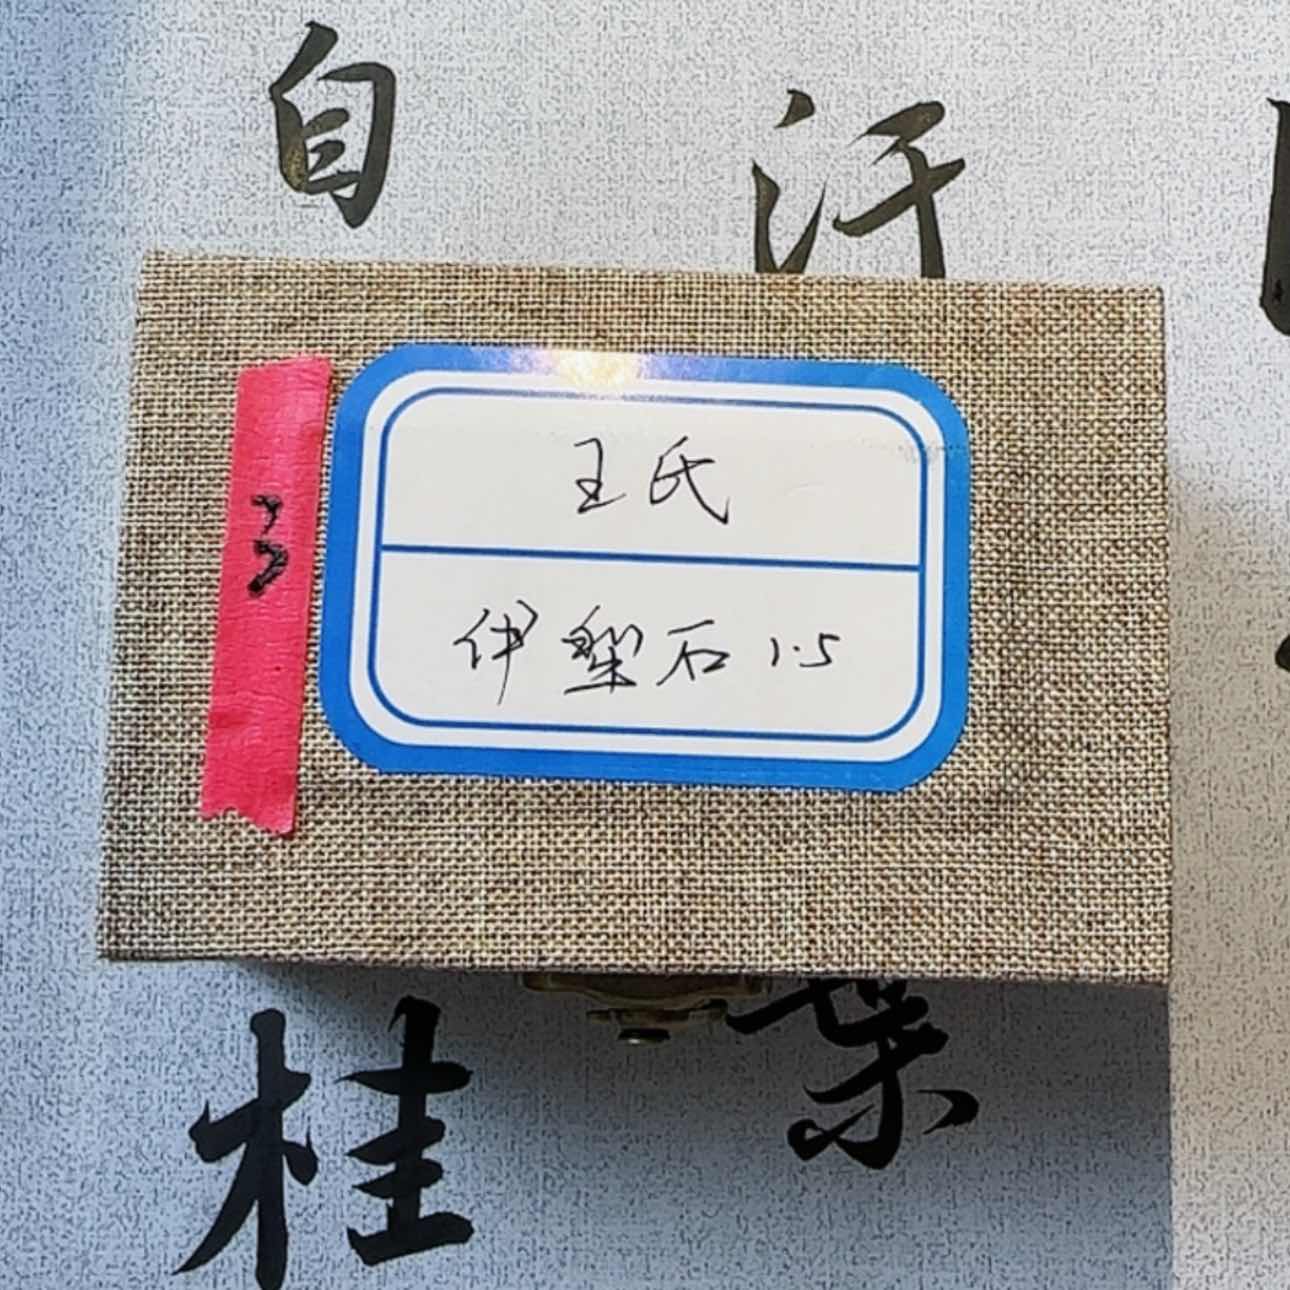 自
汗
王氏
伊犁石 1.5
桂